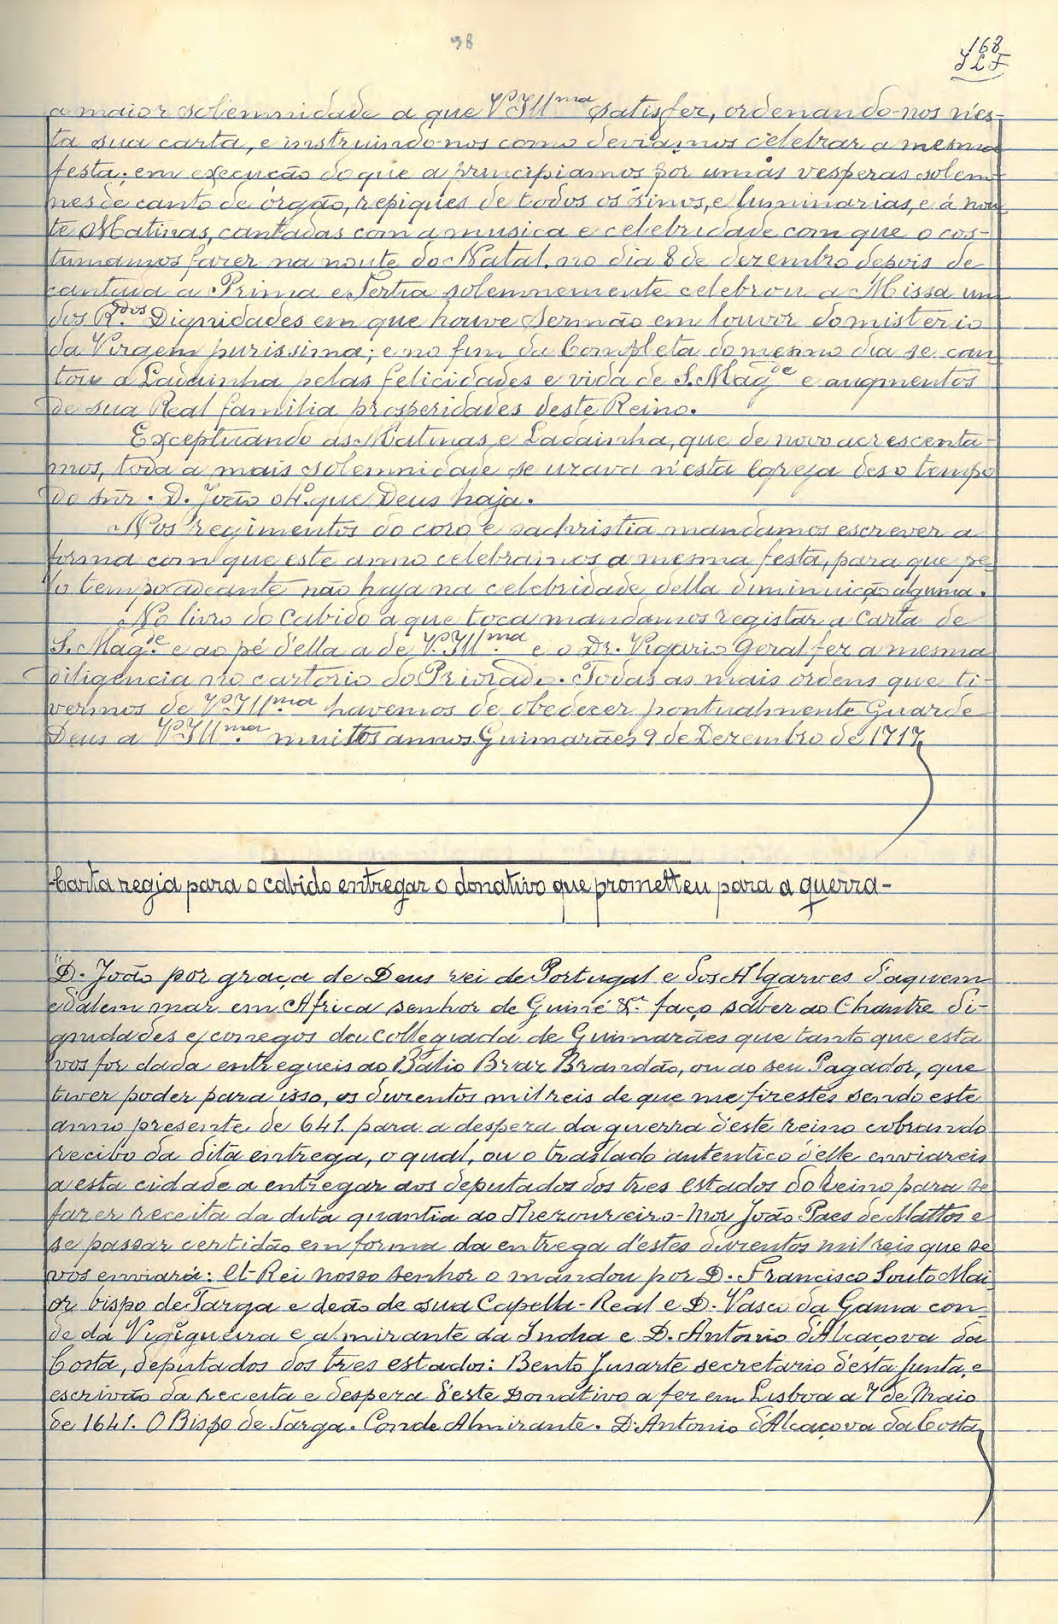 98
168
JLF
a maior solemnidade a que V.ª Ill.ma satisfez, ordenando-nos n'es-
ta sua carta, e instruindo-nos como deviamos celebrar a mesma
festa; em execução do que a principiamos por umas vesperas solem-
nes de canto de órgão, repiques de todos os sinos, e luminarias, e á nou-
te Matinas, cantadas com a musica e celebridade com que o cos-
tumamos fazer na noute do Natal. no dia 8 de dezembro depois de
cantada a Prima e Tertia solemnemente celebrou a Missa um
dos R.dos Dignidades em que houve sermão em louvor do misterio
da Virgem purissima; e no fim da Completa do mesmo dia se can
tou a Ladainha pelas felicidades e vida de S. Mag.de e augmentos
de sua Real familia prosperidades deste Reino.
Exceptuando as Matinas, e Ladainha, que de novo acrescenta-
mos, toda a mais solemnidade se uzava n'esta Egreja des o tempo
do snr. D. João o 4.º que Deus haja.
Nos regimentos do coro e sachristia mandamos escrever a
forma com que este anno celebramos a mesma festa, para que pe-
lo tempo adeante não haja na celebridade della diminuição alguma.
No livro do Cabido a que toca mandamos registar a Carta de
S. Mag.de e ao pé d'ella a de V.ª Ill.ma e o Dr. Vigario Geral fez a mesma
diligencia no cartorio do Priorado. Todas as mais ordens que ti-
vermos de V.ª Ill.ma havemos de obedecer pontualmente Guarde
Deus a V.ª Ill.ma muittos annos. Guimarães 9 de Dezembro de 1717
Carta regia para o cabido entregar o donativo que prometteu para a guerra-
"D. João por graça de Deus rei de Portugal e dos Algarves d'aquem
e d'alem mar em Africa senhor de Guiné &.ª faço saber ao Chantre di-
gnidades e conegos da Collegiada de Guimarães que tanto que esta
vos for dada entregueis ao Balio Braz Brandão, ou ao seu Pagador, que
tiver poder para isso, os duzentos mil reis de que me fizestes sendo este
anno presente de 641. para a despeza da guerra d'este reino cobrando
recibo da dita entrega, o qual, ou o traslado autentico d'elle enviareis
a esta cidade a entregar aos deputados dos tres estados do Reino para se
fazer receita da dita quantia ao Thezoureiro-Mor João Paes de Mattos e
se passar certidão em forma da entrega d'estes duzentos mil reis que se
vos enviará: El-Rei nosso senhor o mandou por D. Francisco Souto Mai
or bispo de Targa e deão de sua Capella-Real e D. Vasco da Gama con
de da Vigigueira e almirante da India e D. Antonio d'Alcaçova da
Costa, deputados dos tres estados: Bento Jusarte secretario d'esta Junta, e
escrivão da receita e despeza d'este Donativo a fez em Lisboa a 7 de Maio
de 1641. O Bispo de Targa. Conde Almirante. D. Antonio d'Alcaçova da Costa